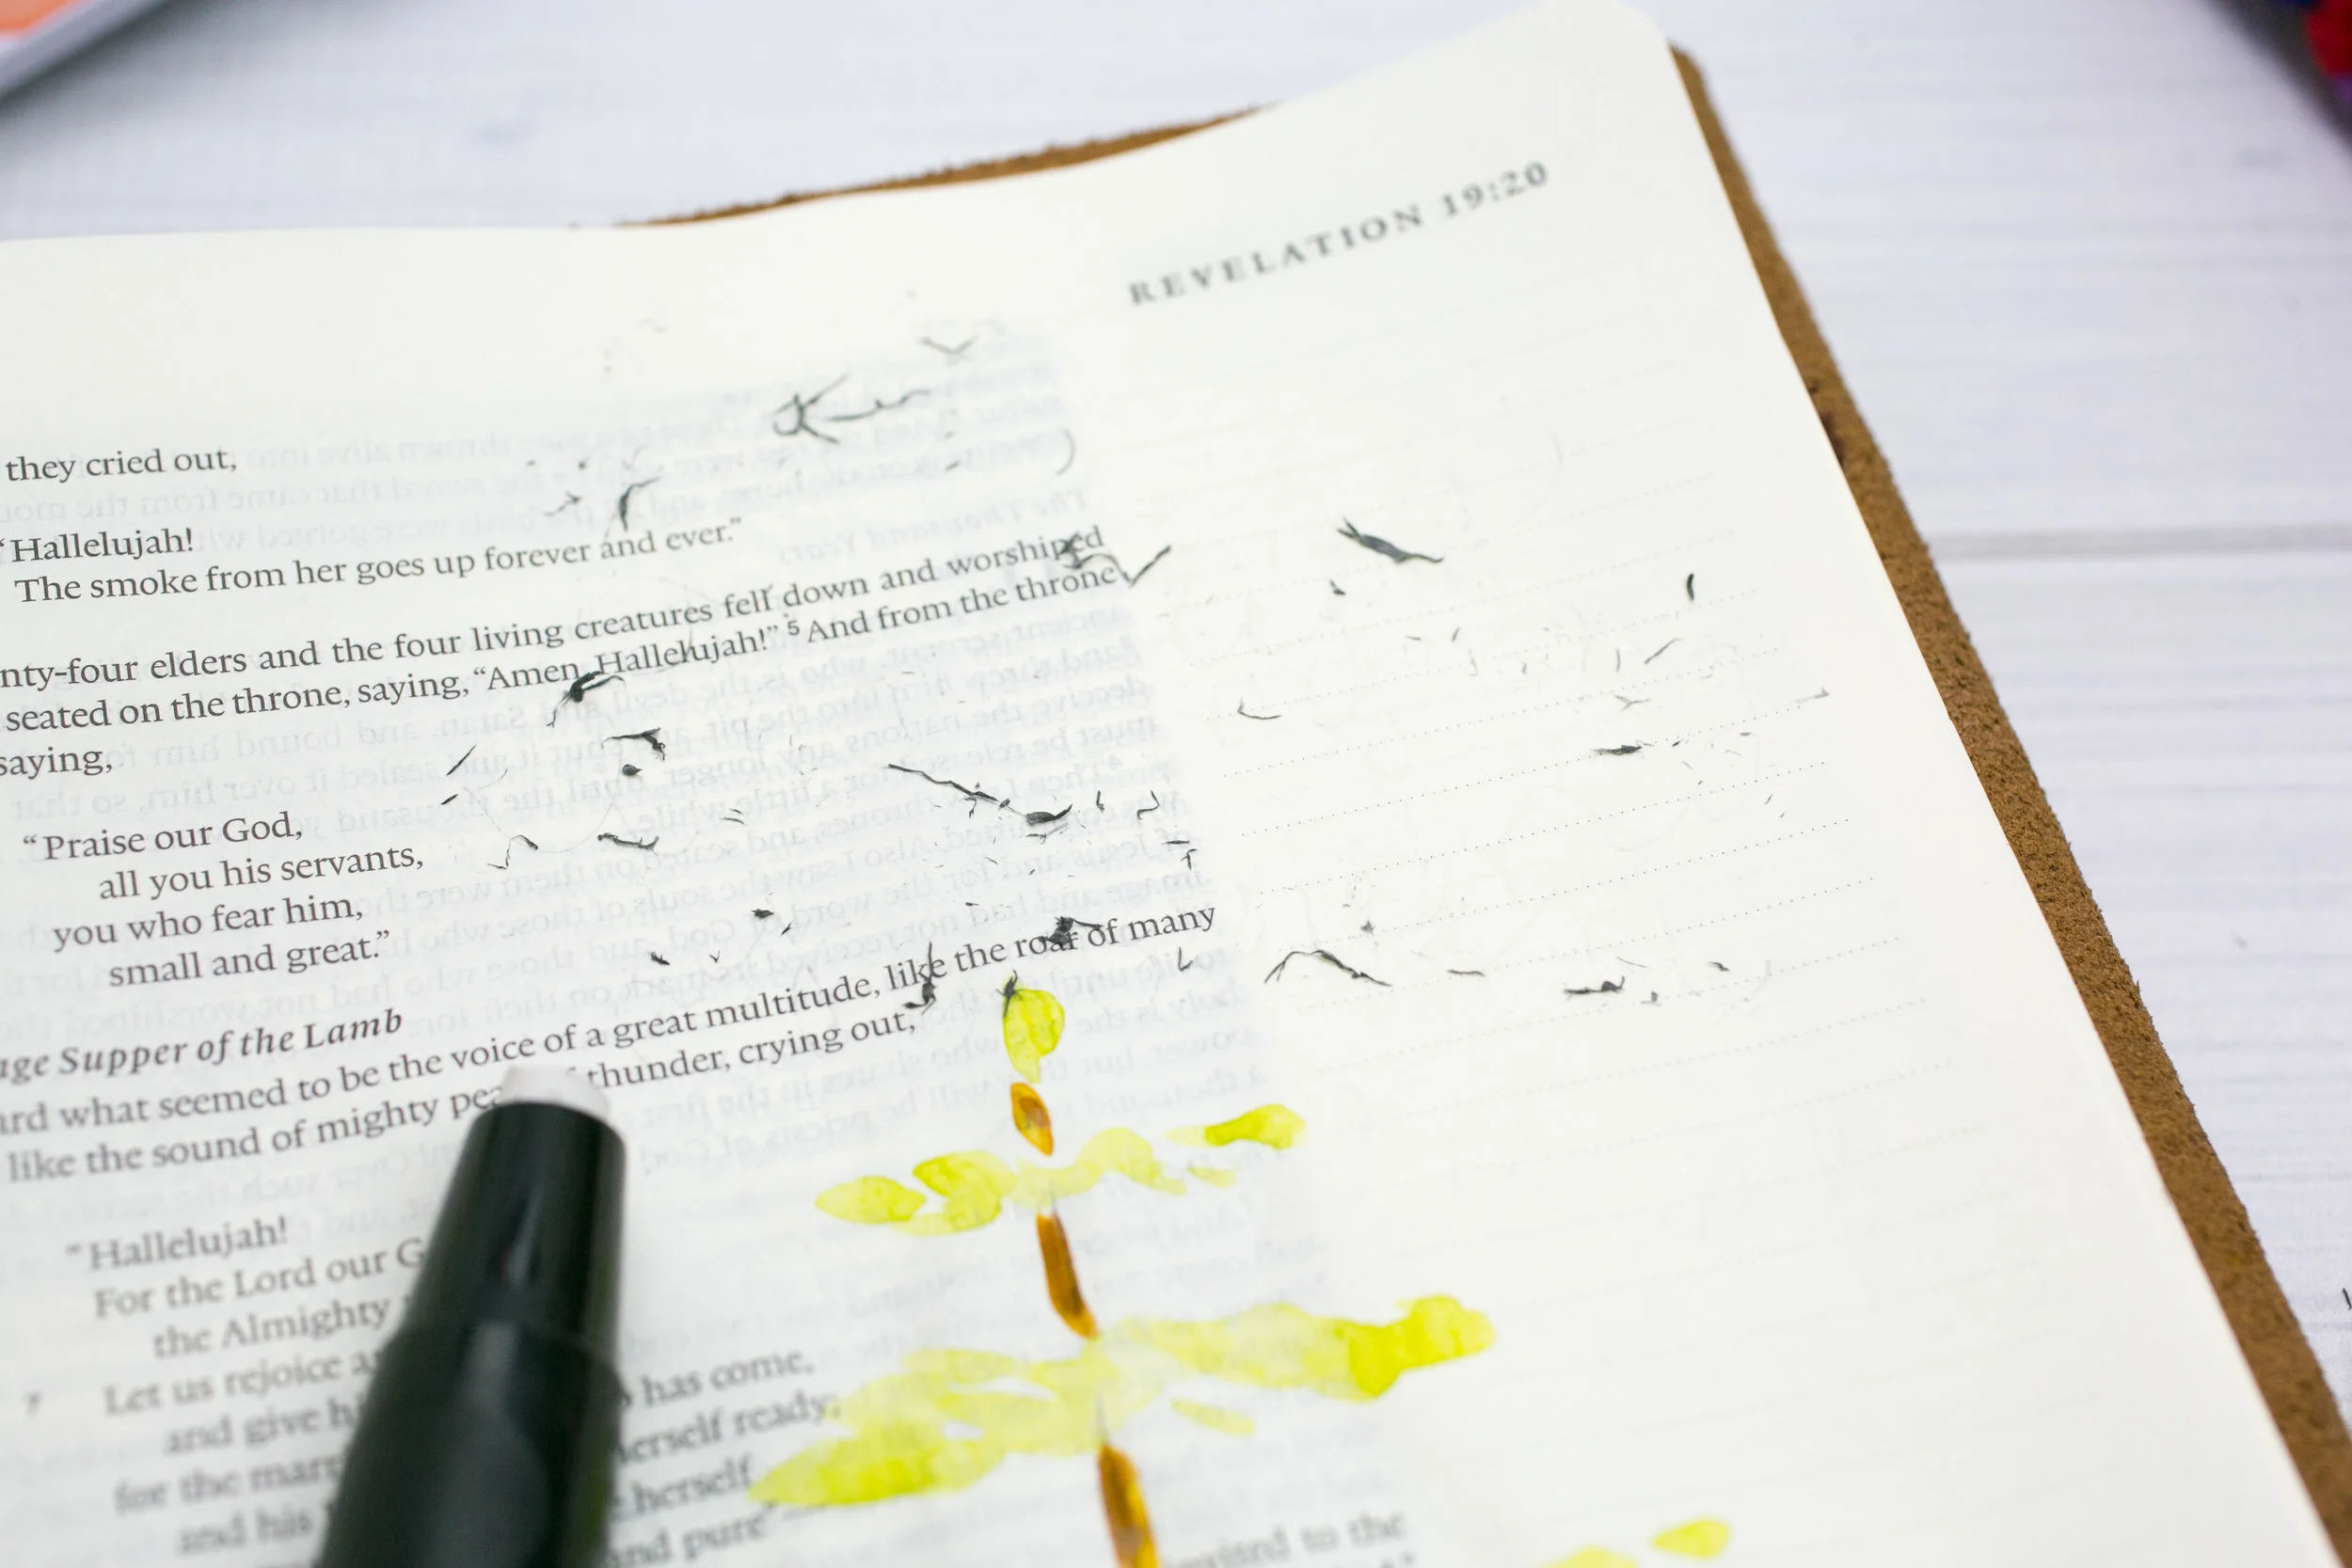 REVELATION 19:20
they cried out,
“Hallelujah!
The smoke from her goes up forever and ever.”
nty-four elders and the four living creatures fell down and worshiped
seated on the throne, saying, “Amen. Hallelujah!” 5 And from the throne
saying,
“Praise our God,
all you his servants,
you who fear him,
small and great.”
age Supper of the Lamb
ard what seemed to be the voice of a great multitude, like the roar of many
like the sound of mighty pea thunder, crying out,
“Hallelujah!
For the Lord our G
the Almighty
7 Let us rejoice a
and give hi has come,
for the marr herself ready;
and his herself
and pure”
invited to the